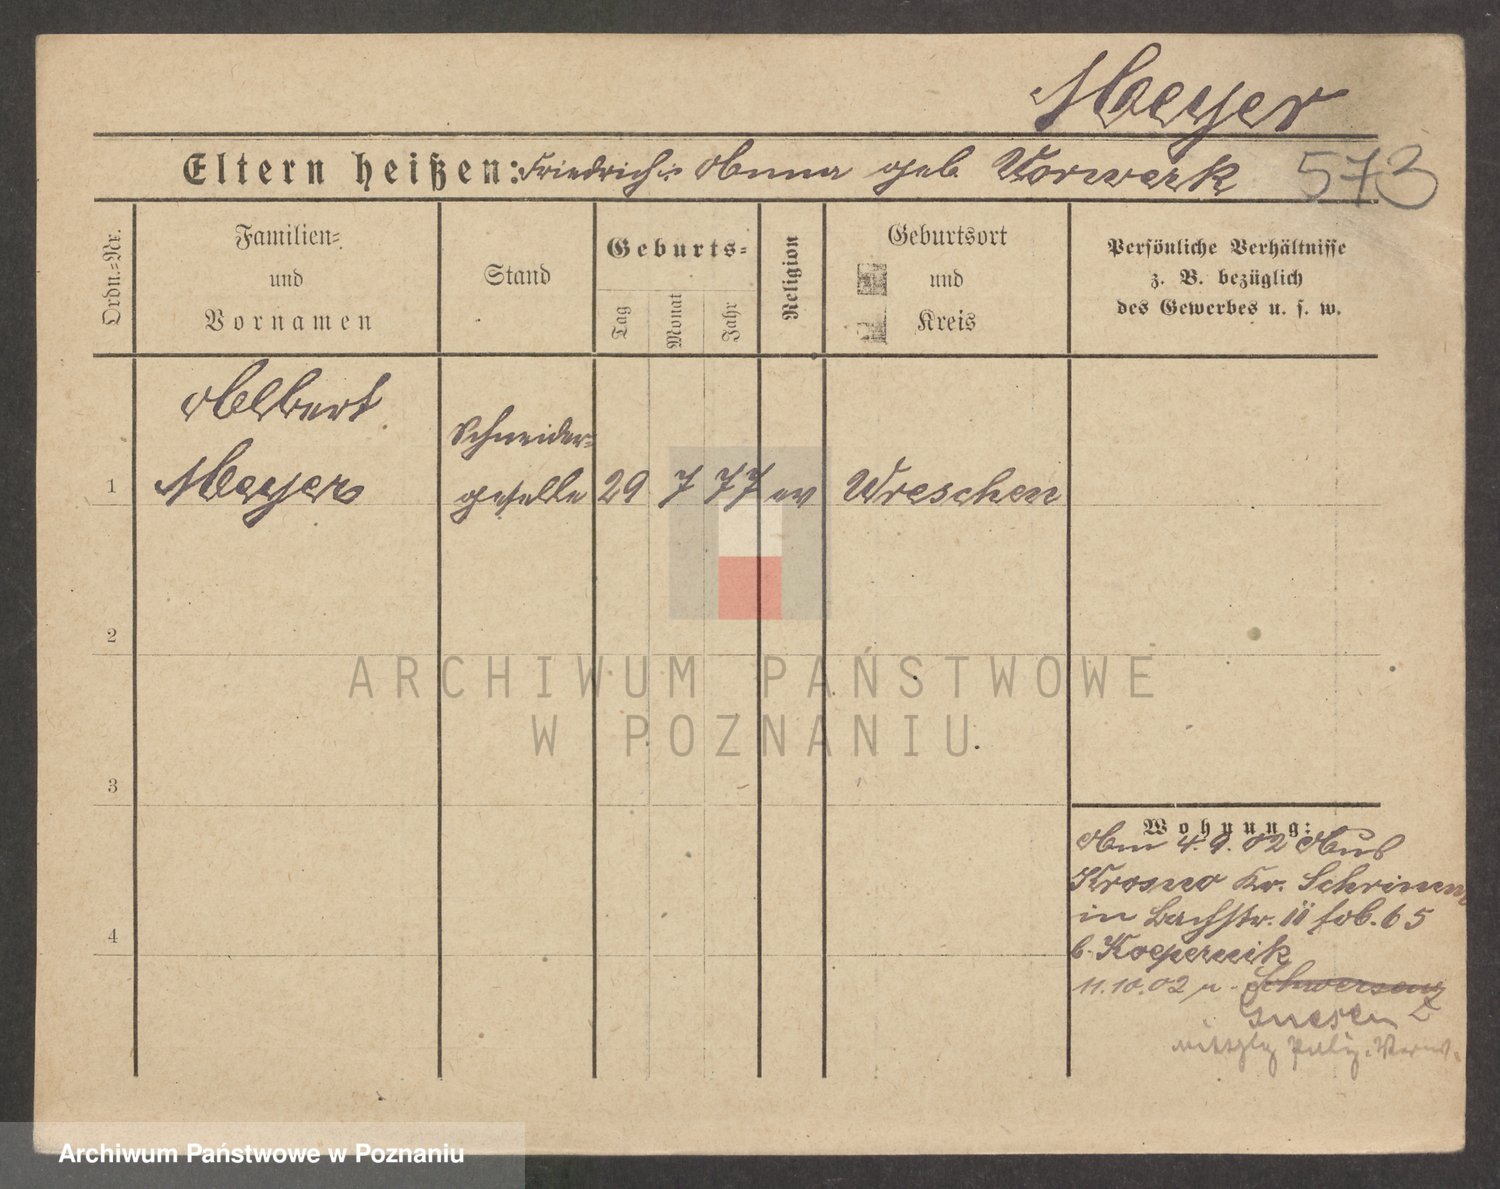 Meyer
573
Eltern heißen: Friedrich u. Anna geb. Vorwerk
Ordn.=Nr.
Familien=
und
Vornamen
Stand
Geburts=
Tag
Monat
Jahr
Religion
Geburtsort
und
Kreis
Persönliche Verhältnisse
z. B. bezüglich
des Gewerbes u. s. w.
Albert
Meyer
Schneider=
geselle
1
29 7 77 ev Wreschen
2
3
4
Wohnung:
Am 4.9.02 Aus
Krosno Kr. Schrimm
in Bachstr. 11 fol. 65
b. Koepernik
11.10.02 n. Schwersenz
Gnesen
ARCHIWUM PAŃSTWOWE
W POZNANIU
Archiwum Państwowe w Poznaniu